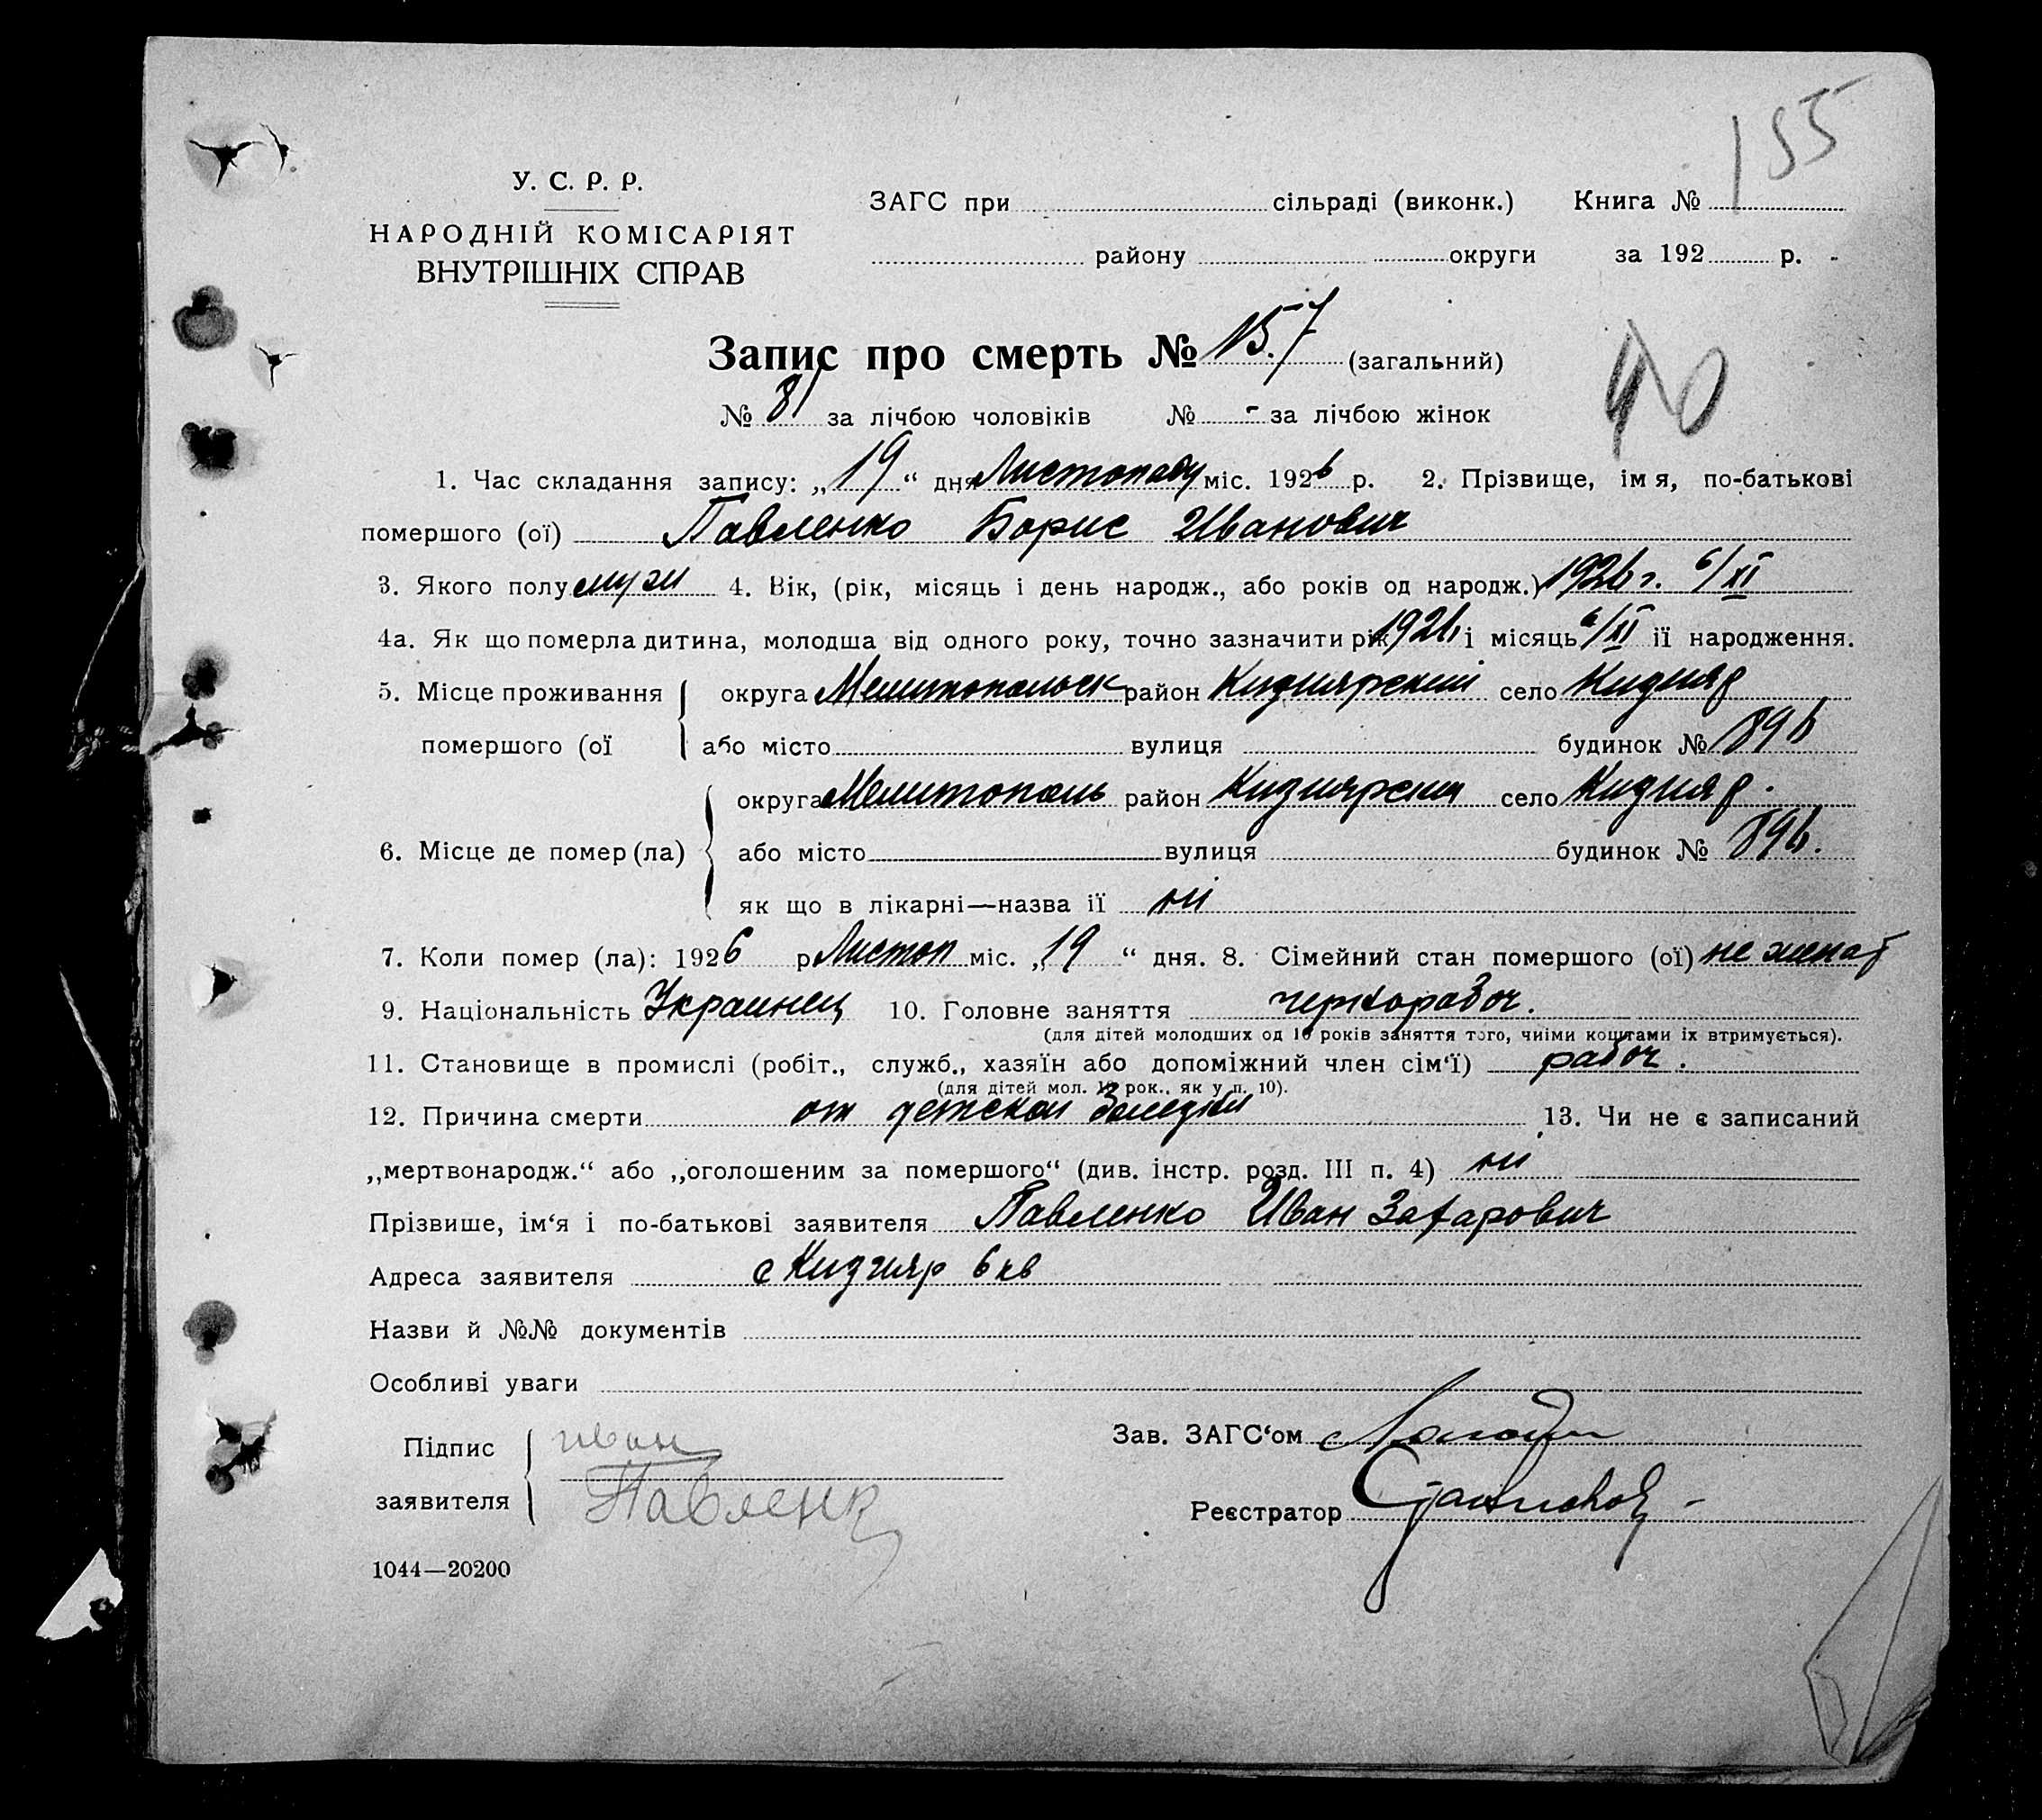 155
У. С. Р. Р.
НАРОДНІЙ КОМІСАРІЯТ
ВНУТРІШНІХ СПРАВ
ЗАГС при сільраді (виконк.) Книга №
району округи за 192 р.
Запис про смерть № 157 (загальний)
40
№ 81 за лічбою чоловіків № - за лічбою жінок
1. Час складання запису: „19“ дня Листопаду міс. 1926 р. 2. Прізвище, імя, по-батькові
помершого (ої) Павленко Борис Иванович
3. Якого полу муж 4. Вік, (рік, місяць і день народж., або років од народж.) 1926 г. 6/XI
4а. Як що померла дитина, молодша від одного року, точно зазначити рік 1926 і місяць 6/XI її народження.
5. Місце проживання округа Мелитопольск район Кизиярский село Кизияр
помершого (ої або місто вулиця будинок № 896
округа Мелитополь район Кизиярский село Кизияр.
6. Місце де помер (ла) або місто вулиця будинок № 896.
як що в лікарні—назва її ні
7. Коли помер (ла): 1926 р Листоп міс. „19“ дня. 8. Сімейний стан помершого (ої) не женат
9. Національність Украинец 10. Головне заняття чернорабоч.
(для дітей молодших од 10 років заняття того, чиїми коштами їх втримується).
11. Становище в промислі (робіт., служб., хазяїн або допоміжний член сім‘ї) рабоч.
(для дітей мол. 10 рок., як у п. 10).
12. Причина смерти от детской болезни 13. Чи не є записаний
„мертвонародж.“ або „оголошеним за помершого“ (див. інстр. розд. III п. 4) ні
Прізвише, ім‘я і по-батькові заявителя Павленко Иван Захарович
Адреса заявителя с Кизияр 6 кв
Назви й №№ документів
Особливі уваги
Підпис иван
заявителя Павленк
Зав. ЗАГС‘ом
Реєстратор
1044—20200